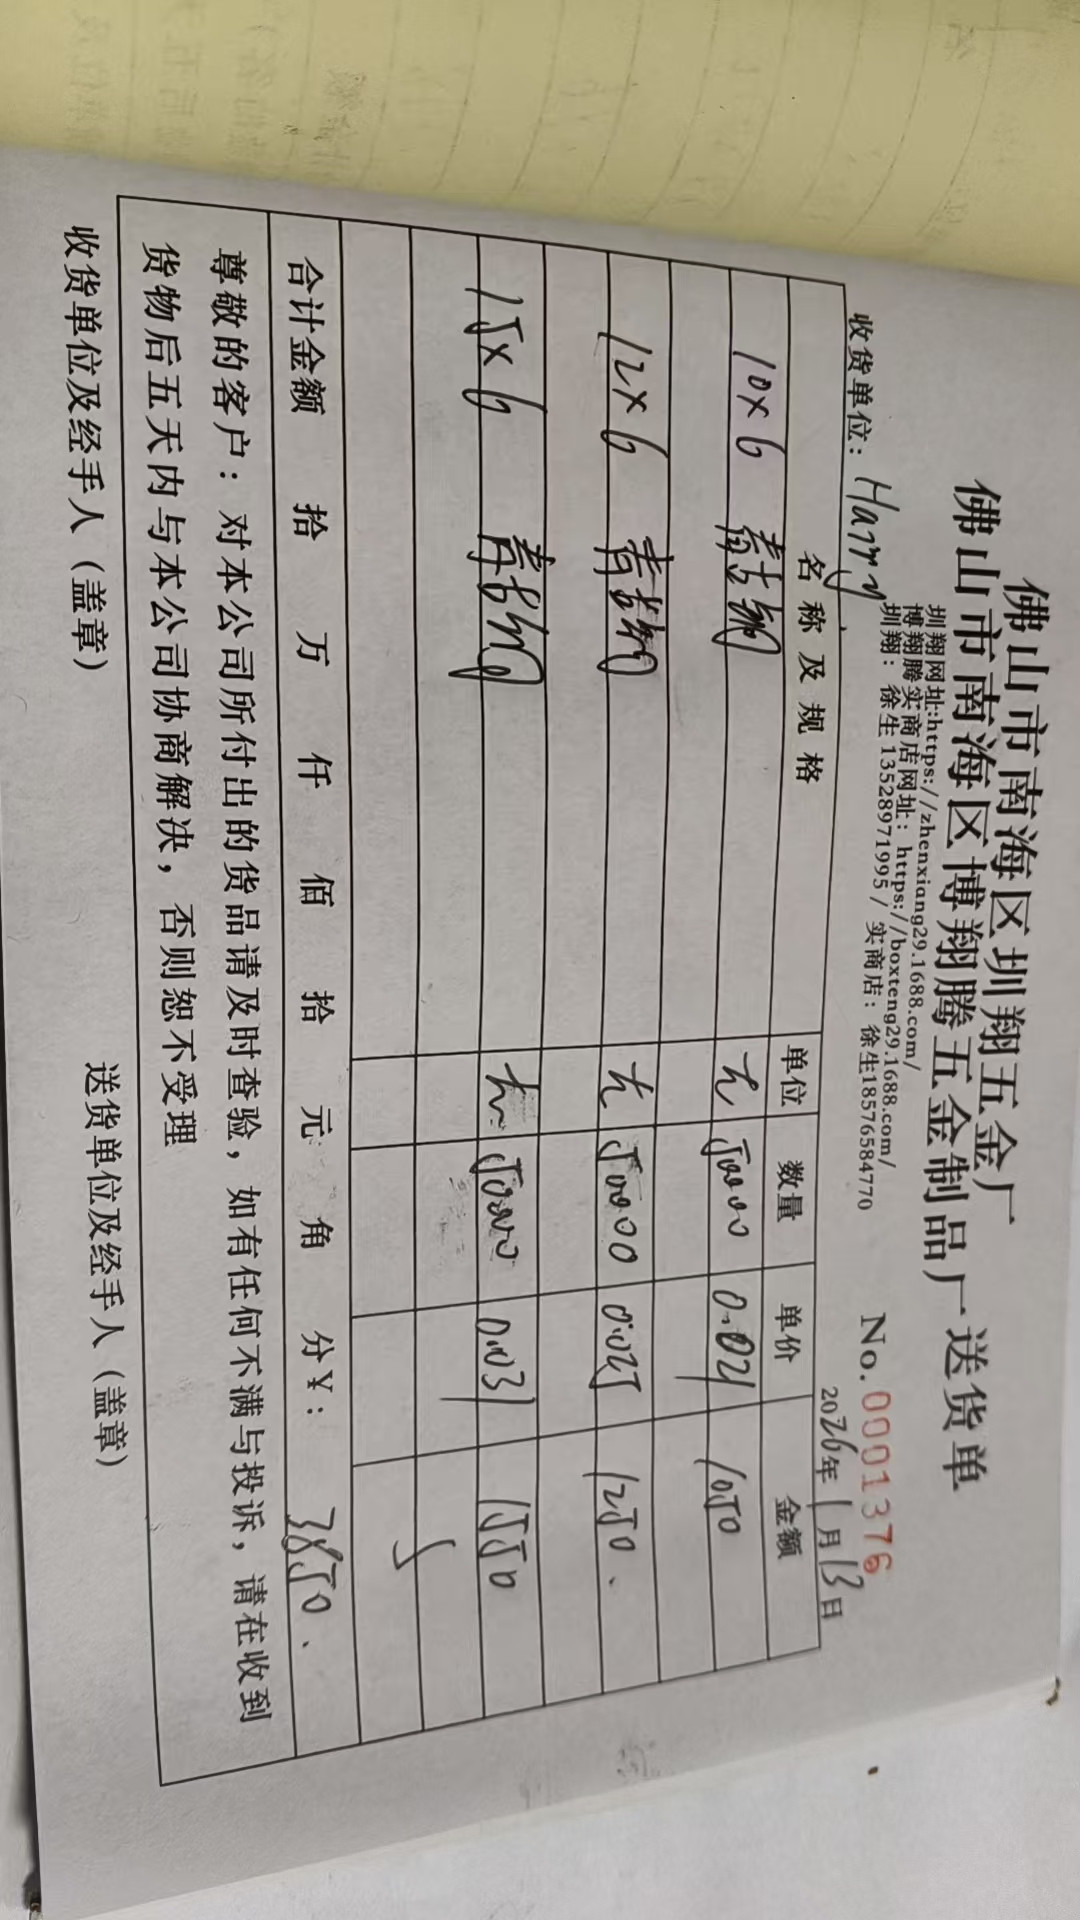 佛山市南海区圳翔五金厂
佛山市南海区博翔腾五金制品厂送货单
圳翔网址:https://zhenxiang29.1688.com/
博翔腾实商店网址：https://boxteng29.1688.com/
圳翔：徐生 13528971995/ 实商店：徐生18576584770
No.0001376
收货单位：Harry
2026年1月13日
名称及规格 单位 数量 单价 金额
10×6 青古铜 个 50000 0.021 1050
12×6 青古铜 个 50000 0.025 1250.
15×6 青古铜 个 50000 0.031 1550
合计金额 拾 万 仟 佰 拾 元 角 分¥: 3850.
尊敬的客户：对本公司所付出的货品请及时查验，如有任何不满与投诉，请在收到
货物后五天内与本公司协商解决，否则恕不受理
收货单位及经手人（盖章） 送货单位及经手人（盖章）